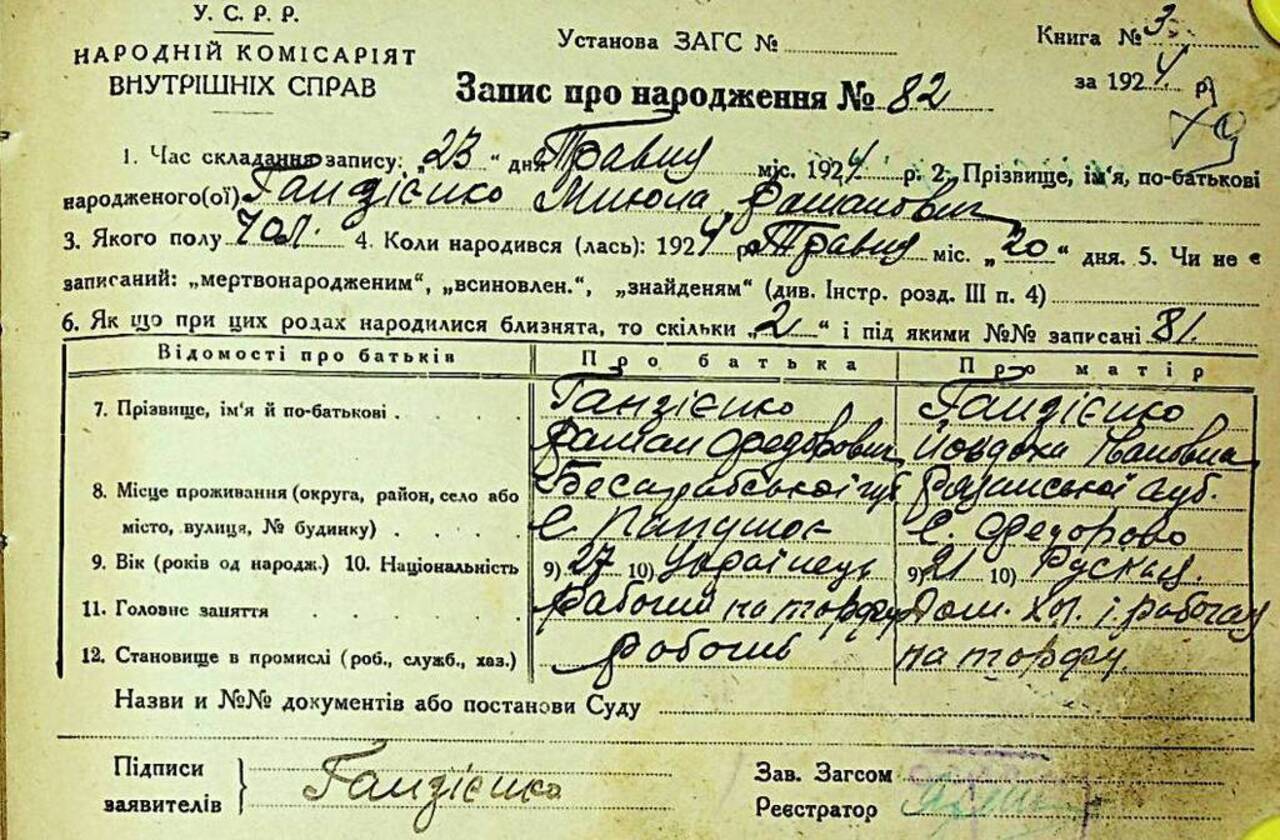 У. С. Р. Р.
НАРОДНІЙ КОМІСАРІЯТ
ВНУТРІШНІХ СПРАВ
Установа ЗАГС №
Книга № 3
за 1924 р
Запис про народження № 82
1. Час складання запису: „23“ дня Травня міс. 1924 р. 2. Прізвище, ім'я, по-батькові
народженого(ої) Гандзієнко Микола Раманович
3. Якого полу Чол. 4. Коли народився (лась): 1924 р. Травня міс. „20“ дня. 5. Чи не є
записаний: „мертвонародженим“, „всиновлен.“, „знайденям“ (див. Інстр. розд. III п. 4)
6. Як що при цих родах народилися близнята, то скільки „2“ і під якими №№ записані 81.
Відомості про батьків Про батька Про матір
7. Прізвище, ім'я й по-батькові Гандзієнко Гандзієнко
Раман Федорович Йовдоха Івановна
8. Місце проживання (округа, район, село або Бесарабської губ Рязанської губ.
місто, вулиця, № будинку) С. С. Федорово
9. Вік (років од народж.) 10. Національність 9) 27 10) Українець 9) 21 10) Руская.
11. Головне заняття Рабочий на торфу Дом. хоз. і рабочая
12. Становище в промислі (роб., служб., хаз.) рабочий на торфу.
Назви и №№ документів або постанови Суду
Підписи
заявителів
Гандзієнко
Зав. Загсом
Реєстратор